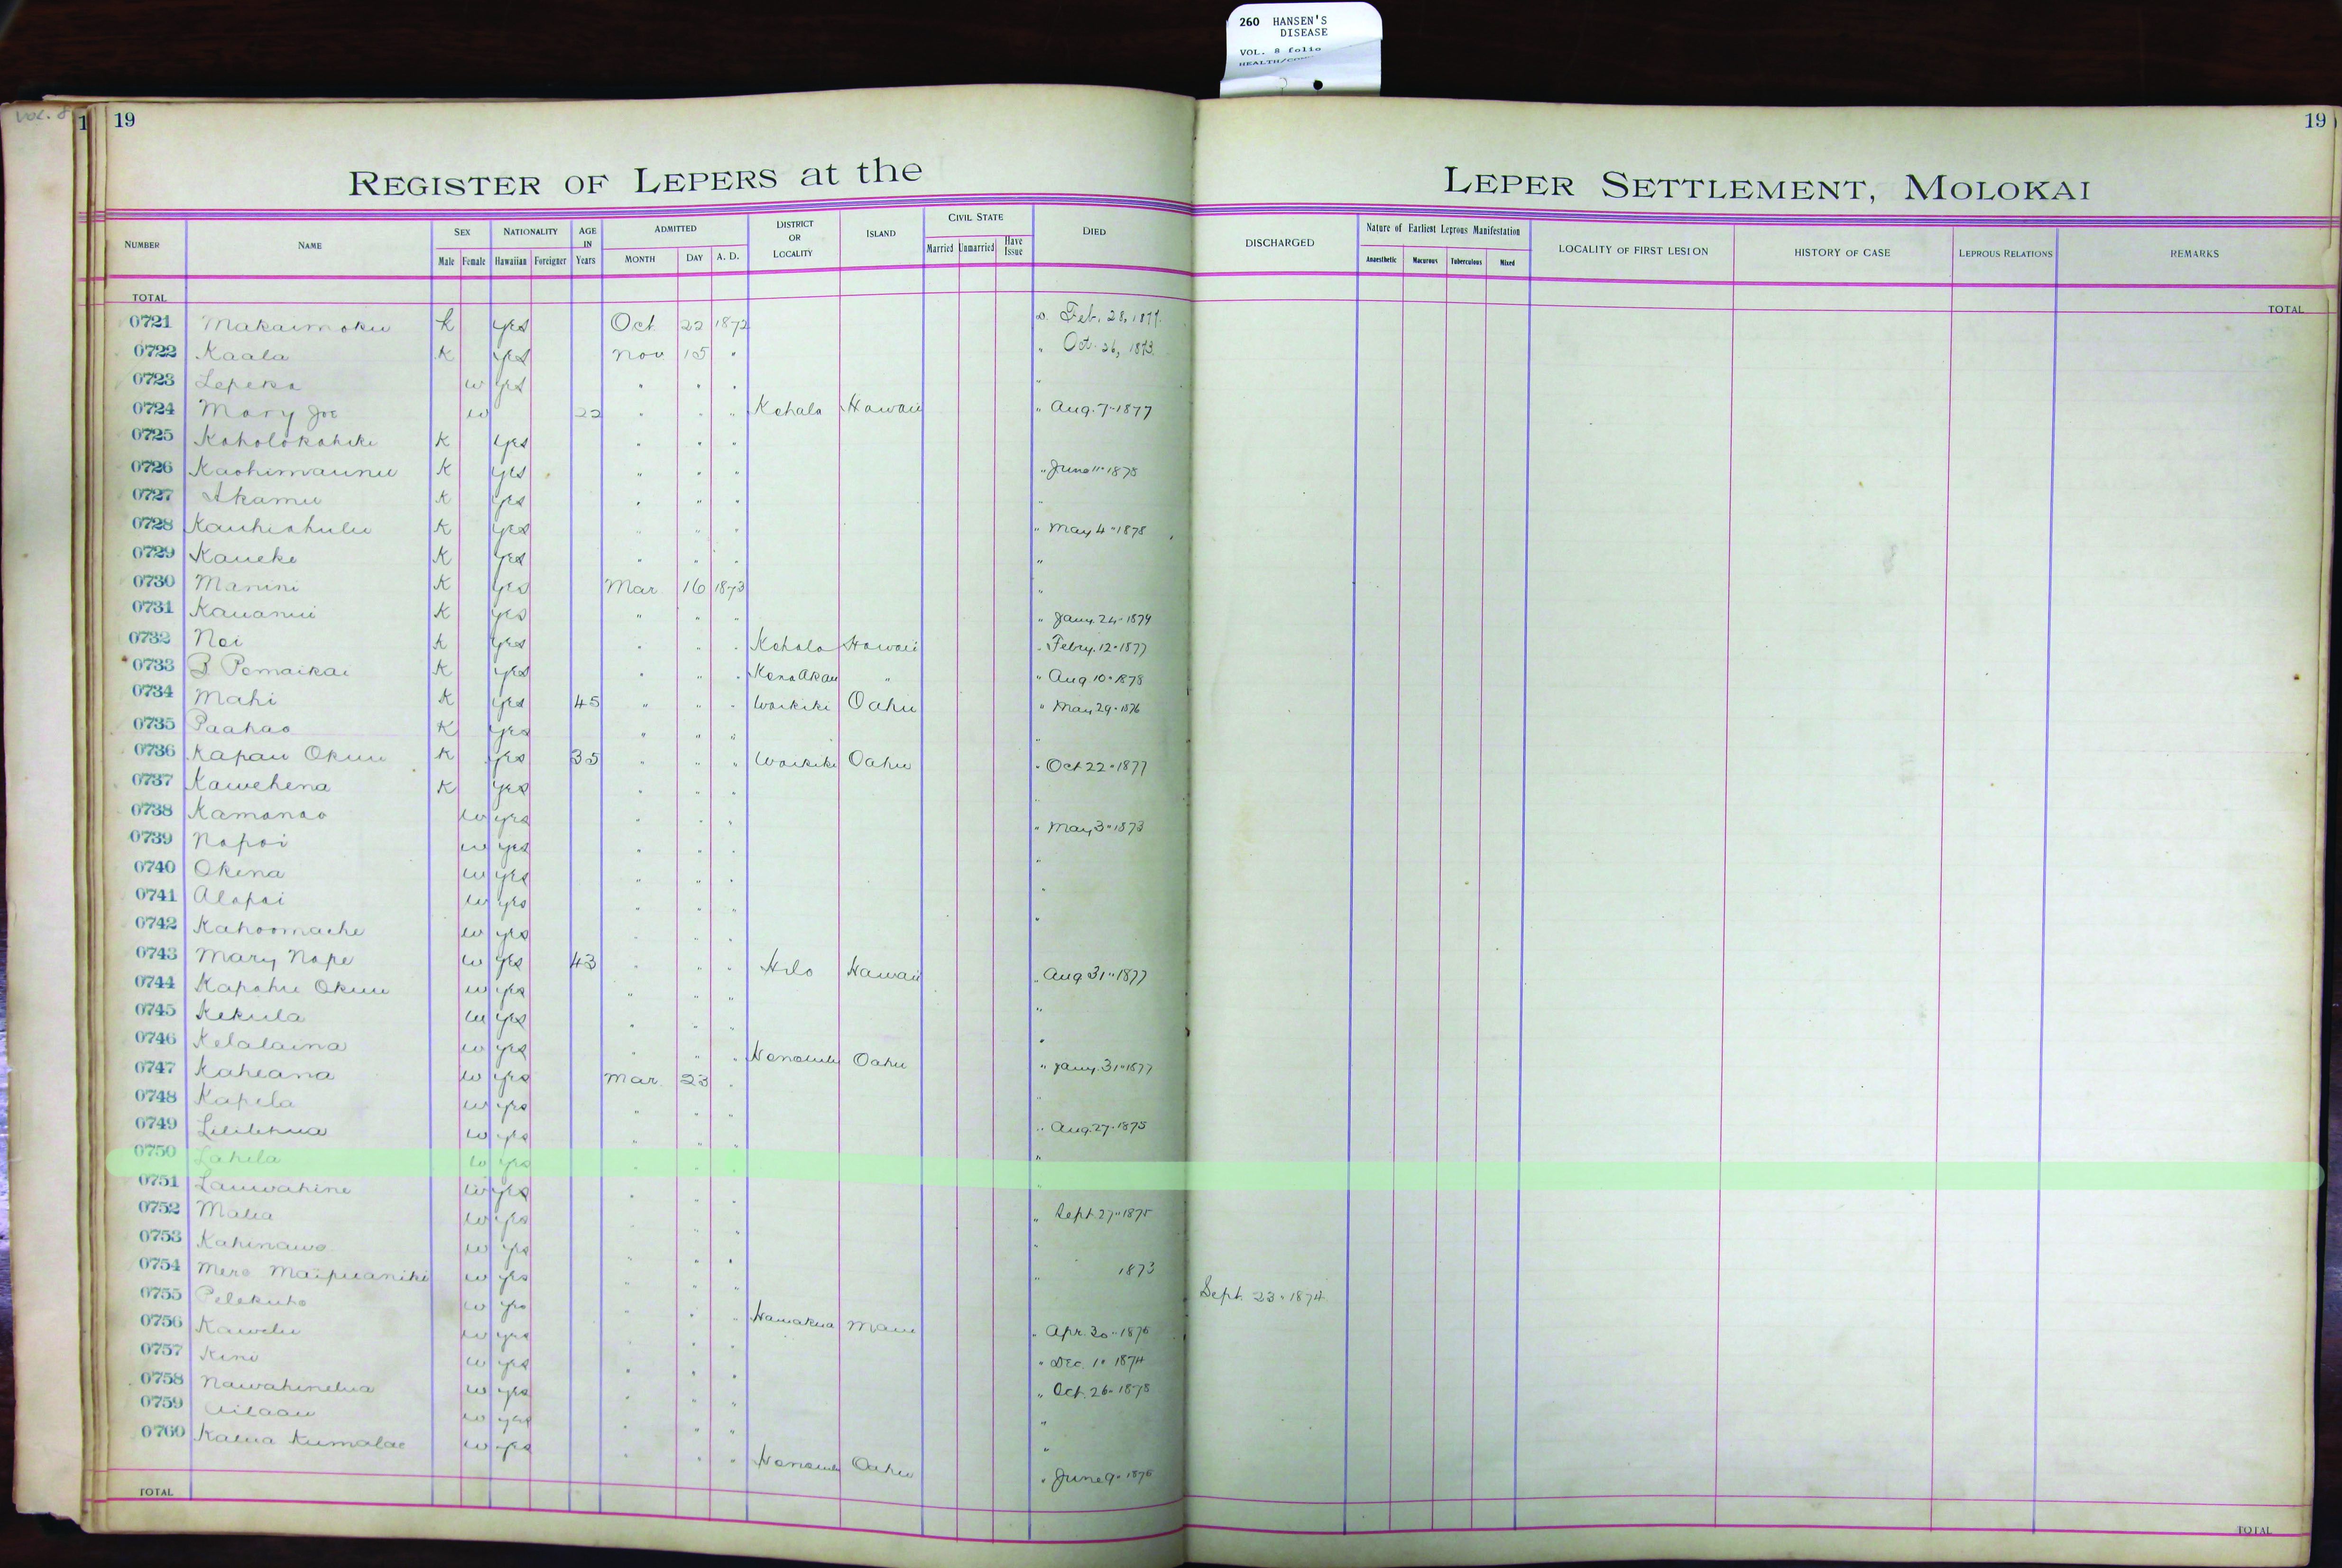 260 HANSEN'S
DISEASE
VOL. 8 folio
Vol. 8
1 19
19
REGISTER OF LEPERS at the LEPER SETTLEMENT, MOLOKAI
NUMBER NAME SEX Male Female NATIONALITY Hawaiian Foreigner AGE IN Years ADMITTED MONTH DAY A. D. DISTRICT OR LOCALITY ISLAND CIVIL STATE Married Unmarried Have Issue DIED DISCHARGED Nature of Earliest Leprous Manifestation Anaesthetic Macurous Tuberculous Mixed LOCALITY OF FIRST LESION HISTORY OF CASE LEPROUS RELATIONS REMARKS
TOTAL TOTAL
0721 Makaimoku k yes Oct 22 1872 Feb. 28, 1877.
0722 Kaala K yes Nov 15 " " Oct. 26, 1873.
0723 Lepeka w yes " " " "
0724 Mary Joe w 22 " " " Kohala Hawaii " Aug. 7 " 1877
0725 Koholokahiki K yes " " "
0726 Kaohimaunu K yes " " " " June 11 " 1878
0727 Akamu K yes " " " "
0728 Kauhiahulu K yes " " " " May 4 " 1878
0729 Kaueke K yes " " " "
0730 Manini K yes Mar 16 1873 "
0731 Kauanui K yes " " " " Jany. 24 " 1879
0732 Noi K yes " " " Kohala Hawaii " Febry. 12 " 1877
0733 B Pomaikai K yes " " " Kona Akau " " Aug 10 " 1878
0734 Mahi K yes 45 " " " Waikiki Oahu " May 29 " 1876
0735 Paahao K yes " " " "
0736 Kapau Okuu K yes 35 " " " Waikiki Oahu " Oct 22 " 1877
0737 Kawehena K yes " " " "
0738 Kamanao w yes " " " " May 3 " 1873
0739 Napoi w yes " " " "
0740 Okina w yes " " " "
0741 Alapai w yes " " " "
0742 Kahoomaehe w yes " " "
0743 Mary Nape w yes 43 " " " Hilo Hawaii " Aug 31 " 1877
0744 Kapahu Okuu w yes " " " "
0745 Kekula w yes " " " "
0746 Kelalaina w yes " " " Honolulu Oahu " Jany. 31 " 1877
0747 Kaheana w yes Mar. 23 " "
0748 Kapela w yes " " " " Aug. 27 " 1875
0749 Lililehua w yes " " " "
0750 Lahela w yes " " " "
0751 Lauwahine w yes " " " " Sept. 27 " 1875
0752 Malia w yes " " " "
0753 Kahinawe w yes " " " " 1873
0754 Mere Maipuaniki w yes " " " Sept. 23 " 1874
0755 Pelekuho w yes " " " Hamakua Maui " Apr. 30 " 1876
0756 Kawelu w yes " " " " Dec. 1 " 1874
0757 Kini w yes " " " " Oct. 26 " 1878
0758 Nawahinelua w yes " " " "
0759 Ailaau w yes " " " "
0760 Kalua Kumalae w yes " " " Honolulu Oahu " June 9 " 1876
TOTAL TOTAL